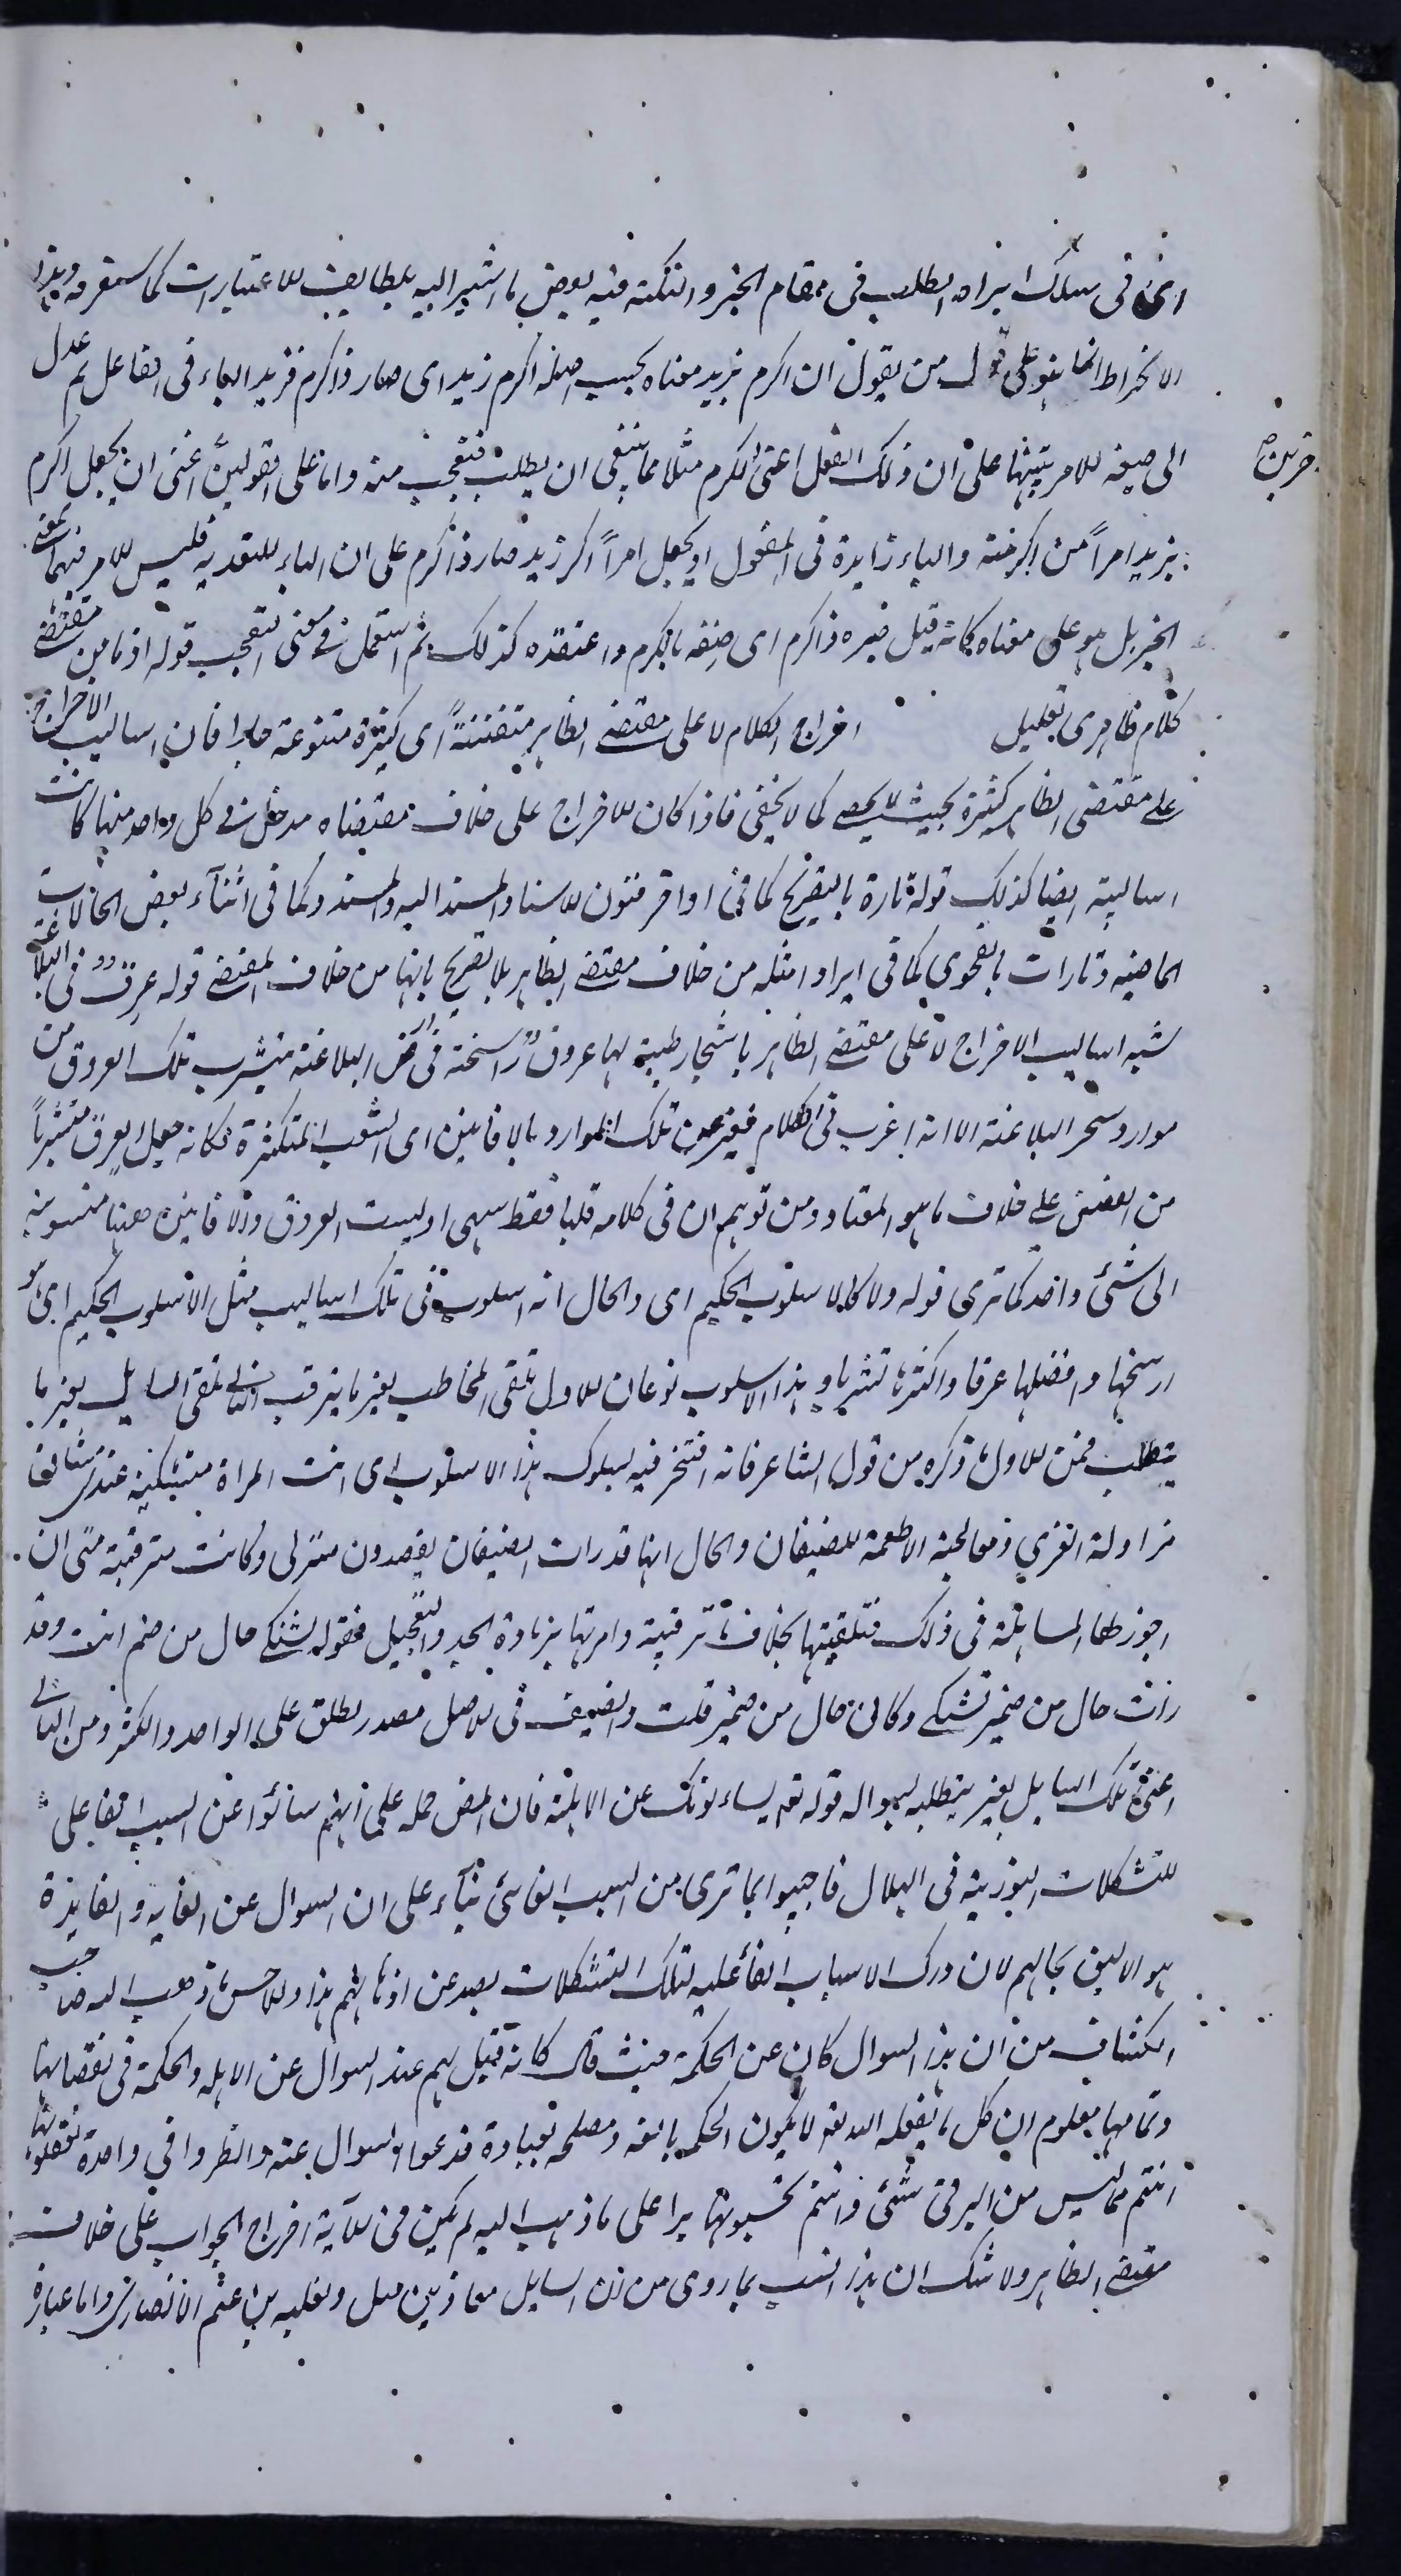 اى فى سلك ايراد الطلب فى مقام الخبر والنكته فيه بعض ما اشير اليه بلطايف الاعتبارات كما ستعرفه وهذا
الانخراط انما هو على قول من يقول ان اكرم بزيد معناه بحسب اصله اكرم زيد اى صار ذا كرم فزيد الباء فى الفاعل ثم عدل
الى صيغه الامر تنبيها على ان ذلك الفعل اعنى الكرم مثلا مما ينبغى ان يطلب فتعجب منه واما على القولين اعنى ان يجعل اكرم
الاخرين صح
بزيد امراً من اكرمته والباء زايدة فى المفعول او يجعل امراً اكرم زيد صار ذا كرم على ان الباء للتعديه فليس الامر فيهما بمعنى
الخبر بل هو على معناه كانه قيل صيره ذا كرم اى صفه بالكرم واعتقده كذلك ثم استعمل فى معنى التعجب قوله اذ ما من مقتضى
كلام ظاهرى تعليل اخراج الكلام لا على مقتضى الظاهر متفننةً اى كثيرة متنوعة جدا فان اساليب الاخراج
على مقتضى الظاهر كثيرة بحيث لا يحصى كما لا يخفى فاذا كان للاخراج على خلاف مقتضاه مدخل فى كل واحد منها كانت
اساليبه ايضا كذلك قوله تارة بالتصريح كما فى اواخر فنون الاسناد والمسند اليه والمسند وكما فى اثناء بعض الحالات
الماضيه وتارات بالفحوى كما فى ايراد امثله من خلاف مقتضى الظاهر بلا تصريح بانها من خلاف المقتضى قوله عرق فى البلاغة
شبه اساليب الاخراج لا على مقتضى الظاهر باشجار طيبة لها عروق راسخة فى ارض البلاغة يتشرب تلك العروق من
موارد سحر البلاغة الا انه اغرب فى الكلام فعبر عن تلك الموارد بالافانين اى الشعب المتكثرة فكانه جعل العرق متشرباً
من الغصن على خلاف ما هو المعتاد ومن توهم ان فى كلامه قلبا فقط سهى اذ ليست العروق والافانين ههنا منسوبة
الى شئ واحد كما ترى قوله ولا كالاسلوب الحكيم اى والحال انه اسلوب فى تلك اساليب مثل الاسلوب الحكيم اى هو
ارسخها وافضلها عرقا واكثرها تشربا وهذا الاسلوب نوعان الاول تلقى المخاطب بغير ما يترقب والثانى تلقى السايل بغير ما
يتطلب فمن الاول ما ذكره من قول الشاعر فانه افتخر فيه بسلوك هذا الاسلوب اى اتت المراة مشتكية عندى مشاق
مزاولة القرى ومعالجة الاطعمة للضيفان والحال انها قد رات الضيفان يقصدون منزلى وكانت مترقبة منى ان
اجوز لها المساهلة فى ذلك فتلقيتها بخلاف ما ترقبه وامرتها بزيادة الجد والتعجيل فقوله تشتكى حال من ضمير اتت وقد
رات حال من ضمير تشتكى وكانى حال من ضمير قلت والضيف فى الاصل مصدر يطلق على الواحد والكثير ومن الثانى
اعنى تلقى السايل بغير ما يتطلبه بسواله قوله تع يسئلونك عن الاهلة فان المص حمله على انهم سألوا عن السبب الفاعلى
للتشكلات النورية فى الهلال فاجيبوا بما ترى من السبب الغائى بناء على ان السوال عن الغايه والفايدة
هو الاليق بحالهم لان درك الاسباب الفاعليه لتلك التشكلات بعيد عن اذهانهم هذا والاحسن ما ذهب اليه صاحب
الكشاف من ان هذا السوال كان عن الحكمة حيث قال كانه قيل لهم عند السوال عن الاهله والحكمة فى نقصانها
وتمامها معلوم ان كل ما يفعله الله تع لا يكون الا حكمه بالغه ومصلحه لعباده فدعوا السوال عنه وانظروا فى واحدة تفعلونها
انتم مما ليس من البر فى شئ وانتم تحسبونها برا على ما ذهب اليه لم يكن فى الآية اخراج الجواب على خلاف
مقتضى الظاهر ولا شك ان هذا انسب بما روى من ان السايل معاذ بن جبل وثعلبه بن غنم الانصارى واما عبارة